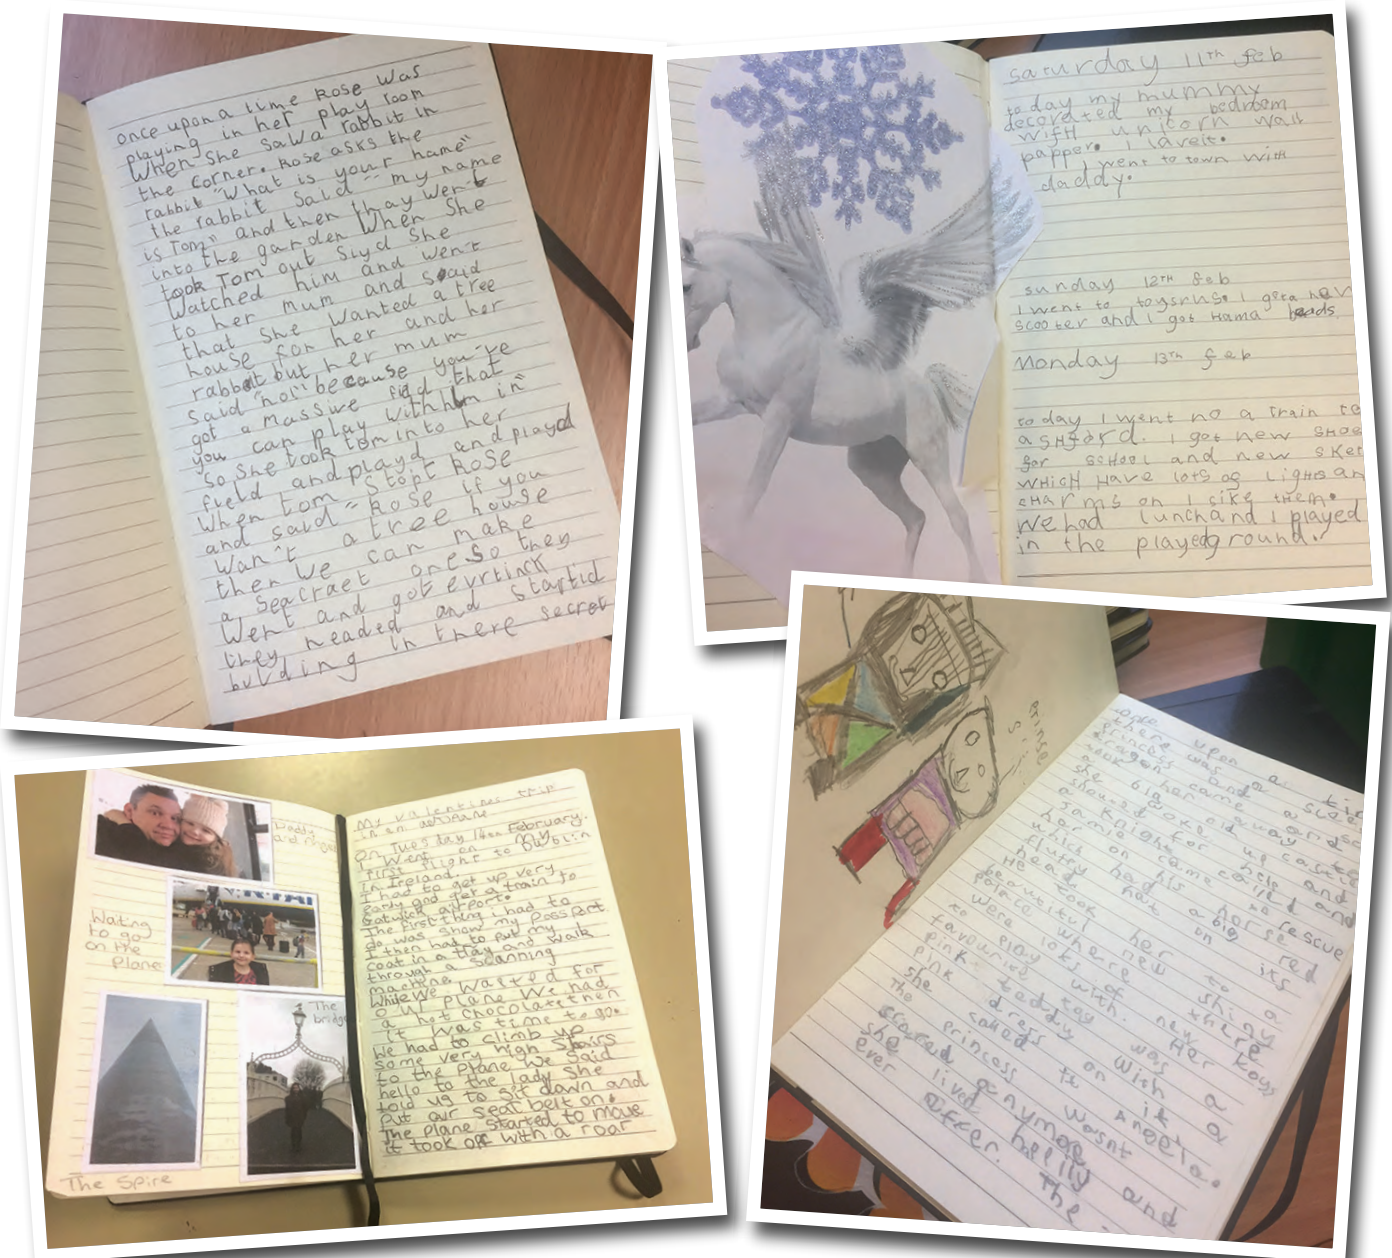 once upon a time Rose was
playing in her play room
When She Saw a rabbit in
the corner. Rose asks the
rabbit "What is your name"
the rabbit Said "my name
is Tom" and then thay went
into the garden When She
took Tom out Siyd She
Watched him and went
to her mum and Said
that She Wanted a tree
house for her and her
rabbit but her mum
Said "no!" because you've
got a massive fild that
you can play with him in"
So She took tom into her
field and playd and playd
When tom Stopt Rose
and said "Rose if you
wan't a tree house
then we can make
a Seacraet one So they
Went and got evrtinck
they neaded and Startid
bulding in there secret
Saturday 11th feb
to day my mummy
decorated my bedroom
with unicorn wall
papper. I laveit.
I went to town with
daddy.
sunday 12TH feb
I went to toysrus. I geta new
scooter and i got Hama beads
Monday 13th feb
to day I went no a train to
aSHford. I got new SHOE
for SCHOOL and new SKer
WHICH HAVE lots of LigHts an
cHArms on I like them.
We had lunchand I played
in the playedground.
Daddy
and
Waiting
to go
on the
Plane
The
bridge
The Spire
My valentines trip
in an aeroPlane
On Tuesday 14th February.
I Went on my
first flight to Dublin
in Ireland.
I had to get up very
early and get a train to
Gatwick airport.
The first thing i had to
do was Show my Passport.
I then had to put my
coat in a tray and walk
through a Scanning
machine.
While We Waited for
our plane We had
a hot chocolate then
it was time to go.
We had to climb up
some very high Stairs
to the plane We Said
hello to the lady She
told us to sit down and
Put our seat belt on.
The Plane Started to move
it took off with a roar
once upon a
there was a
princess and a
dragon came and
took her away
she big old castle
shouted for help and
a Knight came
Jamie called
her on his horse
which had a big red
flutey hat on its
head
He took her to
beautiful new shiny
palace where there
were lots of new toys
to play with. Her
favourite teddy was
pink. with a
pink dress on it
she called it Angela.
The princess wasnt
scared enymore and
she lived heplly
ever after. The